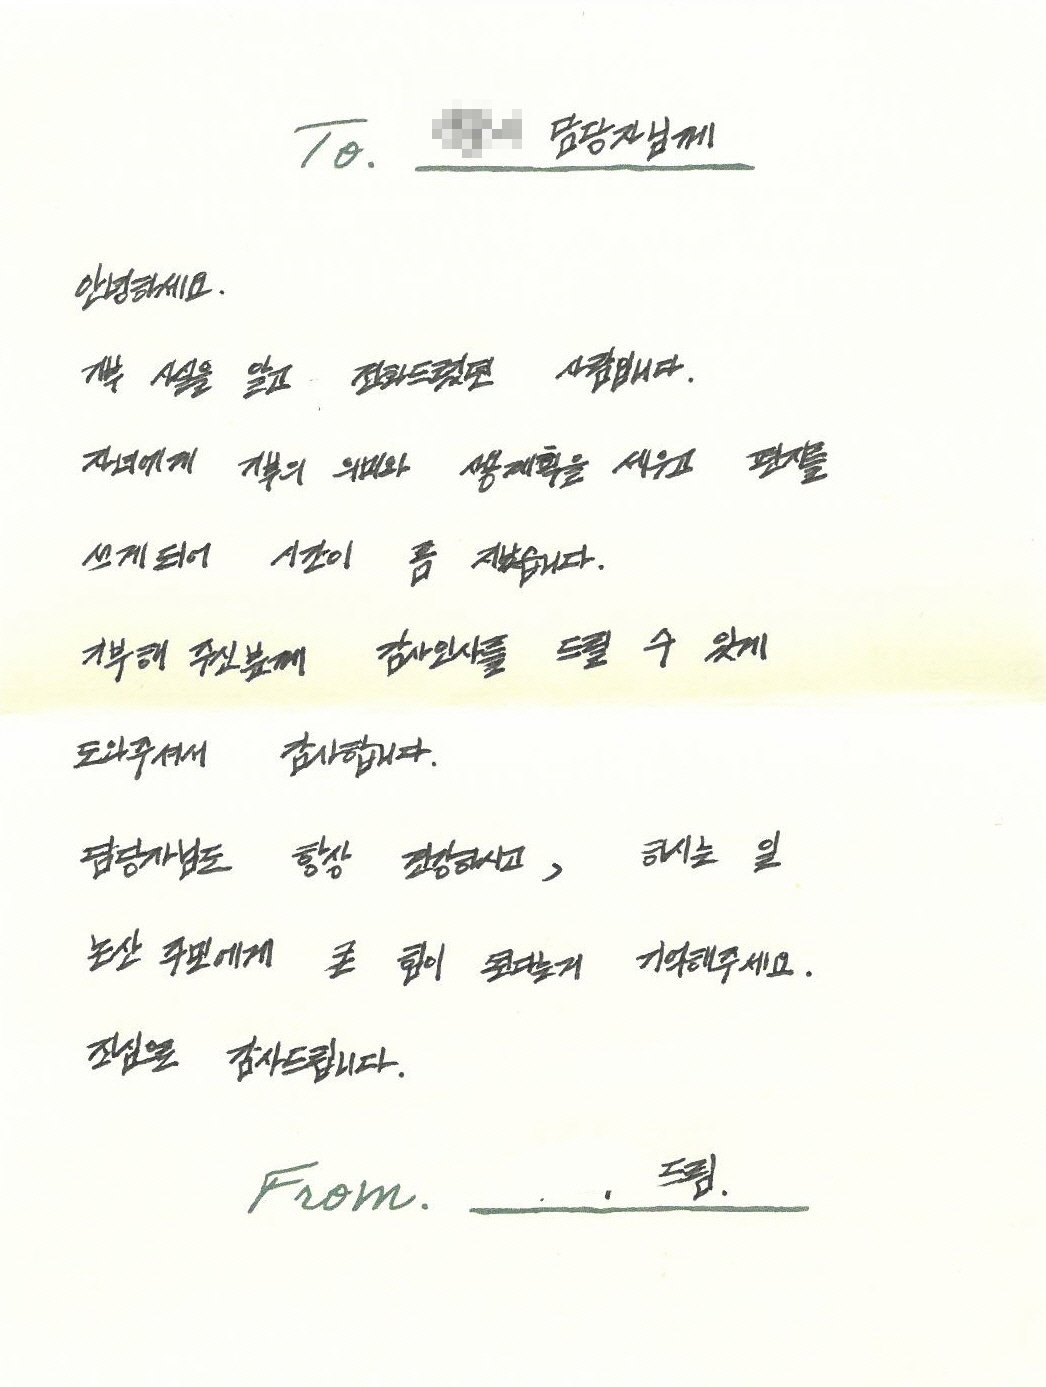 To. 담당자님께
안녕하세요.
기부 사실을 알고 전화드렸던 사람입니다.
자녀에게 기부의 의미와 사용계획을 세우고 편지를
쓰게되어 시간이 좀 지났습니다.
기부해 주신분께 감사인사를 드릴 수 있게
도와주셔서 감사합니다.
담당자님도 항상 건강하시고, 하시는 일
논산 주민에게 큰 힘이 된다는거 기억해주세요.
진심으로 감사드립니다.
From. 드림.